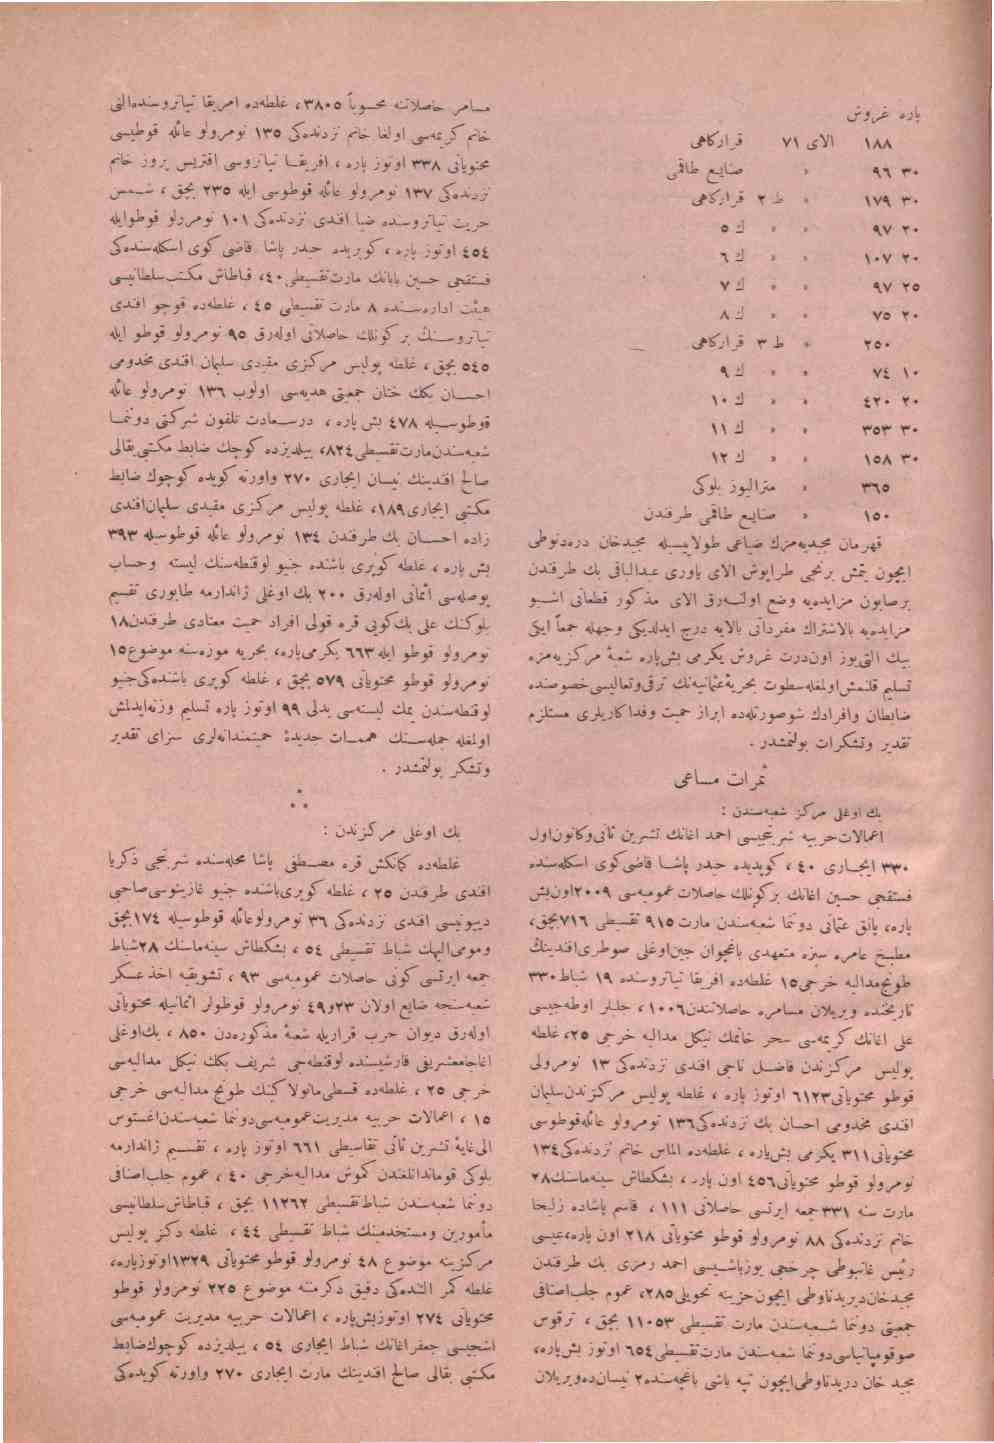 پاره غروش
١٨٨ الای ٧١ قرارکاهی
٣٠ ٩٦ » صنایع طاقمی
٣٠ ١٧٩ » ط ٢ قرارکاهی
٢٠ ٩٧ » » ك ٥
٢٠ ١٠٧ » » ك ٦
٢٥ ٩٧ » » ك ٧
٢٠ ٧٥ » » ك ٨
٢٥٠ » ط ٣ قرارکاهی
١٠ ٧٤ » » ك ٩
٢٠ ٤٢٠ » » ك ١٠
٣٠ ٣٥٣ » » ك ١١
٣٠ ١٥٨ » » ك ١٢
٣٦٥ » مترالیوز بلوکی
١٥٠ » صنایع طاقمی طرفندن
قهرمان مجیدیه‌مزك ضیاعی طولاییسیله مجیدخان دره‌دنوطی
ایچون یتمش برنجی طرابوش الای یاوری عبدالباقی بك طرفندن
برصابون مزایده‌یه وضع اولنه‌رق الای مذکور قطعاتی اشبو
مزایده‌یه بالاشتراك مفرداتی بالایه درج ایدلدیکی وجهله جمعاً ایکی
بیك التی‌یوز اون‌درت غروش یکرمی بش‌پاره شعبهٔ مرکزیه‌مزه
تسلیم قلنمش‌اولمغله سطوت بحریهٔ‌عثمانیه‌نك ترقی‌وتعالیسی‌خصوصنده
ضابطان وافرادك شوصورتله‌ده ابراز حمیت وفداکاریلری مستلزم
تقدیر وتشکرات بولنمشدر .
ثمرات مساعی
بك اوغلی مرکز شعبه‌سندن :
اعمالات‌حربیه شربتجیسی احمد اغانك تشرین ثانی‌وکانون‌اول
٣٣٠ ایجاری ٤٠ ، کوپریده حیدر پاشا قاضی‌کوی اسکله‌سنده
فستقجی حسین اغانك برکونلك حاصلات عمومیه‌سی ٢٠٠٩اون‌بش
پاره، بانق عثمانی دونما شعبه‌سندن مارت ٩١٥ تقسیطی ٧١٦بچق،
مطبخ عامره سبزه متعهدی باغچوان جین‌اوغلی صوطری‌افندینك
طونج‌مدالیه خرجی١٥ غلطه‌ده افریقا تیاتروسنده ١٩ شباط٣٣٠
تاریخنده ویریلان مسامره حاصلاتندن١٠٠٦، جلبلر اوطه‌جیسی
علی اغانك کریمه‌سی سحر خانمك نیکل مدالیه خرجی ٢٥، غلطه
پولیس مرکزندن فاضل ناجی افندی نزدنده‌کی ١٣ نومرولی
قوطو محتویاتی٦١٢٣ اوتوز پاره ، غلطه پولیس مرکزندن‌سلیمان
افندی مخدومی احسان بك نزدنده‌کی١٣٦ نومرولو عائله‌قوطوسی
محتویاتی٣١١ یکرمی بش‌پاره ، غلطه‌ده الماس خانم نزدنده‌کی١٣٤
نومرولو قوطو محتویاتی٤٥٦ اون پاره ، بشکطاش سینه‌ماسنك٢٨
مارت سنه ٣٣١جمعه ایرتسی حاصلاتی ١١١ ، قاسم پاشاده زلیخا
خانم نزدنده‌کی ٨٨ نومرولو قوطو محتویاتی ٢١٨ اون پاره،عیسی
رئیس غانبوطی چرخجی یوزباشیسی احمد رمزی بك طرفندن
مجیدخان‌دریدناوطی ایچون‌خزینه تحویلی٢٨٥، عموم جلب‌اصنافی
جمعیتی دونما شعبه‌سندن مارت تقسیطی ١١٠٥٣ بچق ، ترقوس
صوقومپانیاسی‌دونما شعبه‌سندن مارت‌تقسیطی ٦٥٤ اوتوز بش‌پاره،
مجید خان دریدناوطی‌ایچون تپه باشی باغچه‌سنده٢ نیسان‌ده‌ویریلان
مسامره حاصلاتنه محسوباً ٣٨٠٥، غلطه‌ده امریقا تیاتروسنده‌التی
خانم کریمه‌سی اولغا خانم نزدنده‌کی ١٣٥ نومرولو عائله قوطیسی
محتویاتی ٣٣٨ اوتوز پاره ، افریقا تیاتروسی اقتریس پروز خانم
نزدنده‌کی ١٣٧ نومرولو عائله قوطوسی ایله ٢٣٥ بچق ، شمس
حریت تیاتروسنده ضیا افندی نزدنده‌کی ١٠١ نومرولو قوطوایله
٤٥٤ اوتوز پاره ، کوپریده حیدر پاشا قاضی کوی اسکله‌سنده‌کی
فستقجی حسین بابانك مارت‌تقسیطی٤٠، قباطاش مکتب‌سلطانیسی
هیئت اداره‌سنده ٨ مارت تقسیطی ٤٥ ، غلطه‌ده قوچو افندی
تیاتروسنك برکونلك حاصلاتی اوله‌رق ٩٥ نومرولو قوطو ایله
٥٤٥ بچق ، غلطه پولیس مرکزی مقیدی سلیمان افندی مخدومی
احسان بکك ختان جمعیتی هدیه‌سی اولوب ١٣٦ نومرولو عائله
قوطوسیله ٤٧٨ بش پاره ، درسعادت تلفون شرکتی دونما
شعبه‌سندن‌مارت‌تقسیطی٨٢٤، ییلدیزده کوچك ضابط مکتبی‌بقالی
صالح افندینك نیسان ایجاری ٢٧٠ واورته کویده کوچوك ضابط
مکتبی ایجاری١٨٩، غلطه پولیس مرکزی مقیدی سلیمان‌افندی
زاده احسان بك طرفندن ١٣٤ نومرولو عائله قوطوسیله ٣٩٣
بش پاره ، غلطه کوپری باشنده جنیو لوقنطه‌سنك لیسته وحساب
پوصله‌سی اثمانی اوله‌رق ٢٠٠ بك اوغلی ژاندارمه طابوری تقسیم
بلوکنك علی بك‌کویی قره قولی افراد حمیت معتادی طرفندن١٨
نومرولو قوطو ایله ٦٦٣ یکرمی‌پاره، بحریه موزه‌سنه موضوع١٥
نومرولو قوطو محتویاتی ٥٧٩ بچق ، غلطه کوپری باشنده‌کی‌جنیو
لوقنطه‌سندن یمك لیسته‌سی بدلی ٩٩ اوتوز پاره تسلیم وزنه‌ایدلمش
اولمغله جمله‌سنك همات جدیدهٔ حمیتمندانه‌لری سزای تقدیر
وتشکر بولنمشدر .
بك اوغلی مرکزندن :
غلطه‌ده کمانکش قره مصطفی پاشا محله‌سنده شربتجی ذکریا
افندی طرفندن ٢٥ ، غلطه کوپری‌باشنده جنیو غازینوسی‌صاحبی
دیونیسی افندی نزدنده‌کی ٣٦ نومرولوعائله قوطوسیله ١٧٤بچق
ومومی‌الیهك شباط تقسیطی ٥٤ ، بشکطاش سینه‌ماسنك ٢٨شباط
جمعه ایرتسی کونی حاصلات عمومیه‌سی ٩٣ ، تشویقیه اخذعسکر
شعبه‌سنجه ضایع اولان ٢٣و٤٩ نومرولو قوطولر اثمانیله محتویاتی
اوله‌رق دیوان حرب قراریله شعبهٔ مذکوره‌دن ٨٥٠ ، بك‌اوغلی
اغاجامعشریفی قارشیسنده لوقنطه‌جی شریف بکك نیکل مدالیه‌سی
خرجی ٢٥ ، غلطه‌ده قسطی‌مانولا کنك طونج مدالیه‌سی خرجی
١٥ ، اعمالات حربیه مدیریت‌عمومیه‌سی‌دونما شعبه‌سندن‌اغستوس
الی‌غایهٔ تشرین ثانی تقاسیطی ٦٦١ اوتوز پاره ، تقسیم ژاندارمه
بلوکی قوماندانلغندن کموش مدالیه‌خرجی ٤٠ ، عموم جلب‌اصنافی
دونما شعبه‌سندن شباط‌تقسیطی ١١٢٦٢ بچق ، قباطاش‌سلطانیسی
مأمورین ومستخدمینك شباط تقسیطی ٤٤ ، غلطه دکز پولیس
مرکزینه موضوع ٤٨ نومرولو قوطو محتویاتی ١٣٢٩اوتوزپاره،
غلطه کمر التنده‌کی دقیق دکرمننه موضوع ٢٢٥ نومرولو قوطو
محتویاتی ٢٧٤ اوتوزبش‌پاره ، اعمالات حربیه مدیریت عمومیه‌سی
اشجیسی جعفراغانك شباط ایجاری ٥٤ ، ییلدیزده کوچوك‌ضابط
مکتبی بقالی صالح افندینك مارت ایجاری ٢٧٠ واورته کویده‌کی